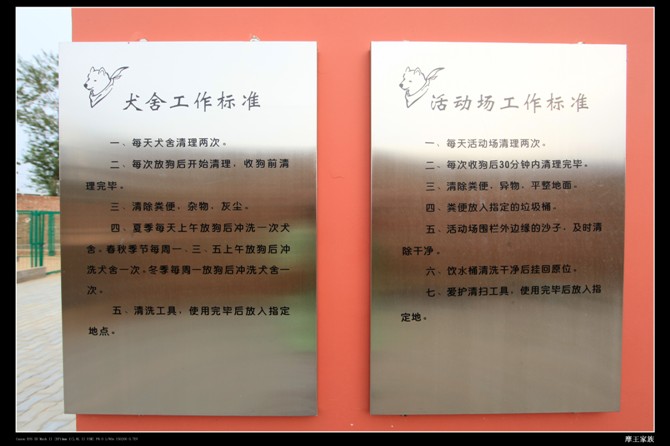 犬舍工作标准
一、每天犬舍清理两次。
二、每次放狗后开始清理，收狗前清
理完毕。
三、清除粪便、杂物、灰尘。
四、夏季每天上午放狗后冲洗一次犬
舍。春秋季节每周一、三、五上午放狗后冲
洗犬舍一次。冬季每周一放狗后冲洗犬舍一
次。
五、清洗工具，使用完毕后放入指定
地点。
活动场工作标准
一、每天活动场清理两次。
二、每次收狗后30分钟内清理完毕。
三、清除粪便、异物，平整地面。
四、粪便放入指定的垃圾桶。
五、活动场围栏外边缘的沙子，及时清
除干净。
六、饮水桶清洗干净后挂回原位。
七、爱护清扫工具，使用完毕后放入指
定地。
摩王家族